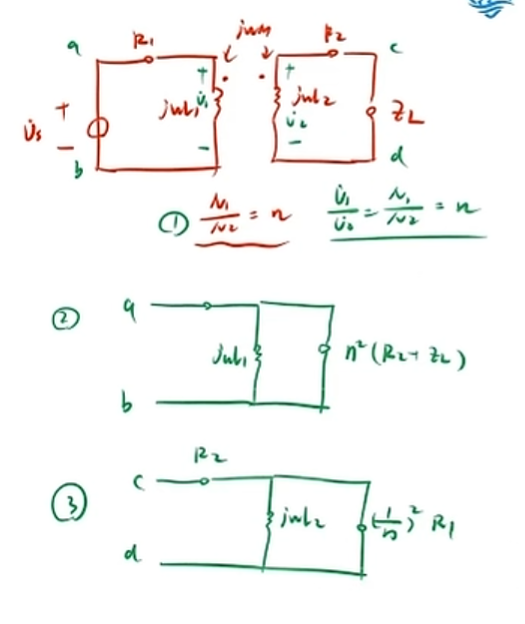 jωM
a R₁ R₂ c
+ + +
U̇s jωL₁ U̇₁ jωL₂ U̇₂ Z_L
- - -
b d
① N₁/N₂ = n U̇₁/U̇₂ = N₁/N₂ = n
② a
jωL₁ n²(R₂+Z_L)
b
R₂
③ c
jωL₂ (1/n)² R₁
d